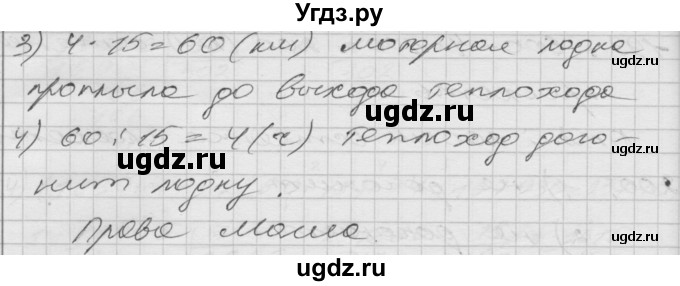 Угдз.ру
3) 4 · 15 = 60 (км) моторная лодка
проплыла до выхода теплохода
4) 60 : 15 = 4 (ч) теплоход дого-
нит лодку.
Права Маша.
ugdz.ru
ugdz.ru
ugdz.ru
ugdz.ru
ugdz.ru
ugdz.ru
ugdz.ru
ugdz.ru